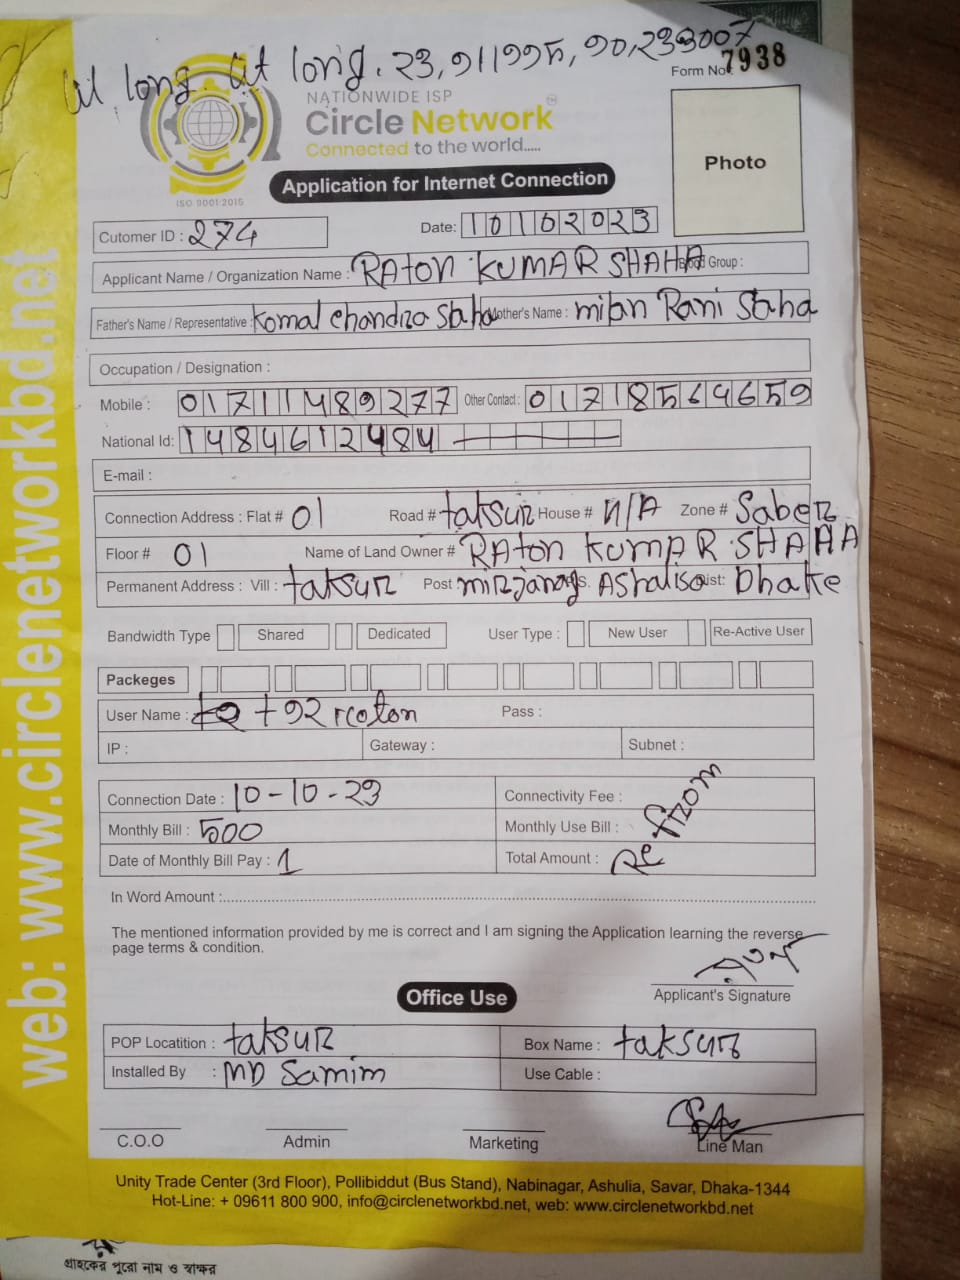 At long. At long. 23,911995, 90,2393007
Form No: 7938
NATIONWIDE ISP
Circle Network
Connected to the world.....
ISO 9001:2015
Application for Internet Connection
Photo
Cutomer ID : 274
Date: 10102023
Applicant Name / Organization Name : RAton KUMAR SHAHA Blood Group :
Father's Name / Representative : Komal chandra Saha Mother's Name : milan Rani Saha
Occupation / Designation :
Mobile : 01711489277 Other Contact : 01718564659
National Id: 1484612484
E-mail :
Connection Address : Flat # 01 Road # taksur House # n/A Zone # Saber
Floor # 01 Name of Land Owner # RAton KumAR SHAHA
Permanent Address : Vill : taksur Post mirjanag P.S. Ashaliya Dist: Dhake
Bandwidth Type Shared Dedicated User Type : New User Re-Active User
Packeges
User Name : t92 raton Pass :
IP : Gateway : Subnet :
Connection Date : 10-10-23 Connectivity Fee :
Monthly Bill : 500 Monthly Use Bill :
Date of Monthly Bill Pay : 1 Total Amount :
Re from
In Word Amount :
The mentioned information provided by me is correct and I am signing the Application learning the reverse
page terms & condition.
Applicant's Signature
Office Use
POP Locatition : taksur Box Name : taksur
Installed By : MD Samim Use Cable :
C.O.O Admin Marketing Line Man
Unity Trade Center (3rd Floor), Pollibiddut (Bus Stand), Nabinagar, Ashulia, Savar, Dhaka-1344
Hot-Line: + 09611 800 900, info@circlenetworkbd.net, web: www.circlenetworkbd.net
web: www.circlenetworkbd.net
গ্রাহকের পুরো নাম ও স্বাক্ষর